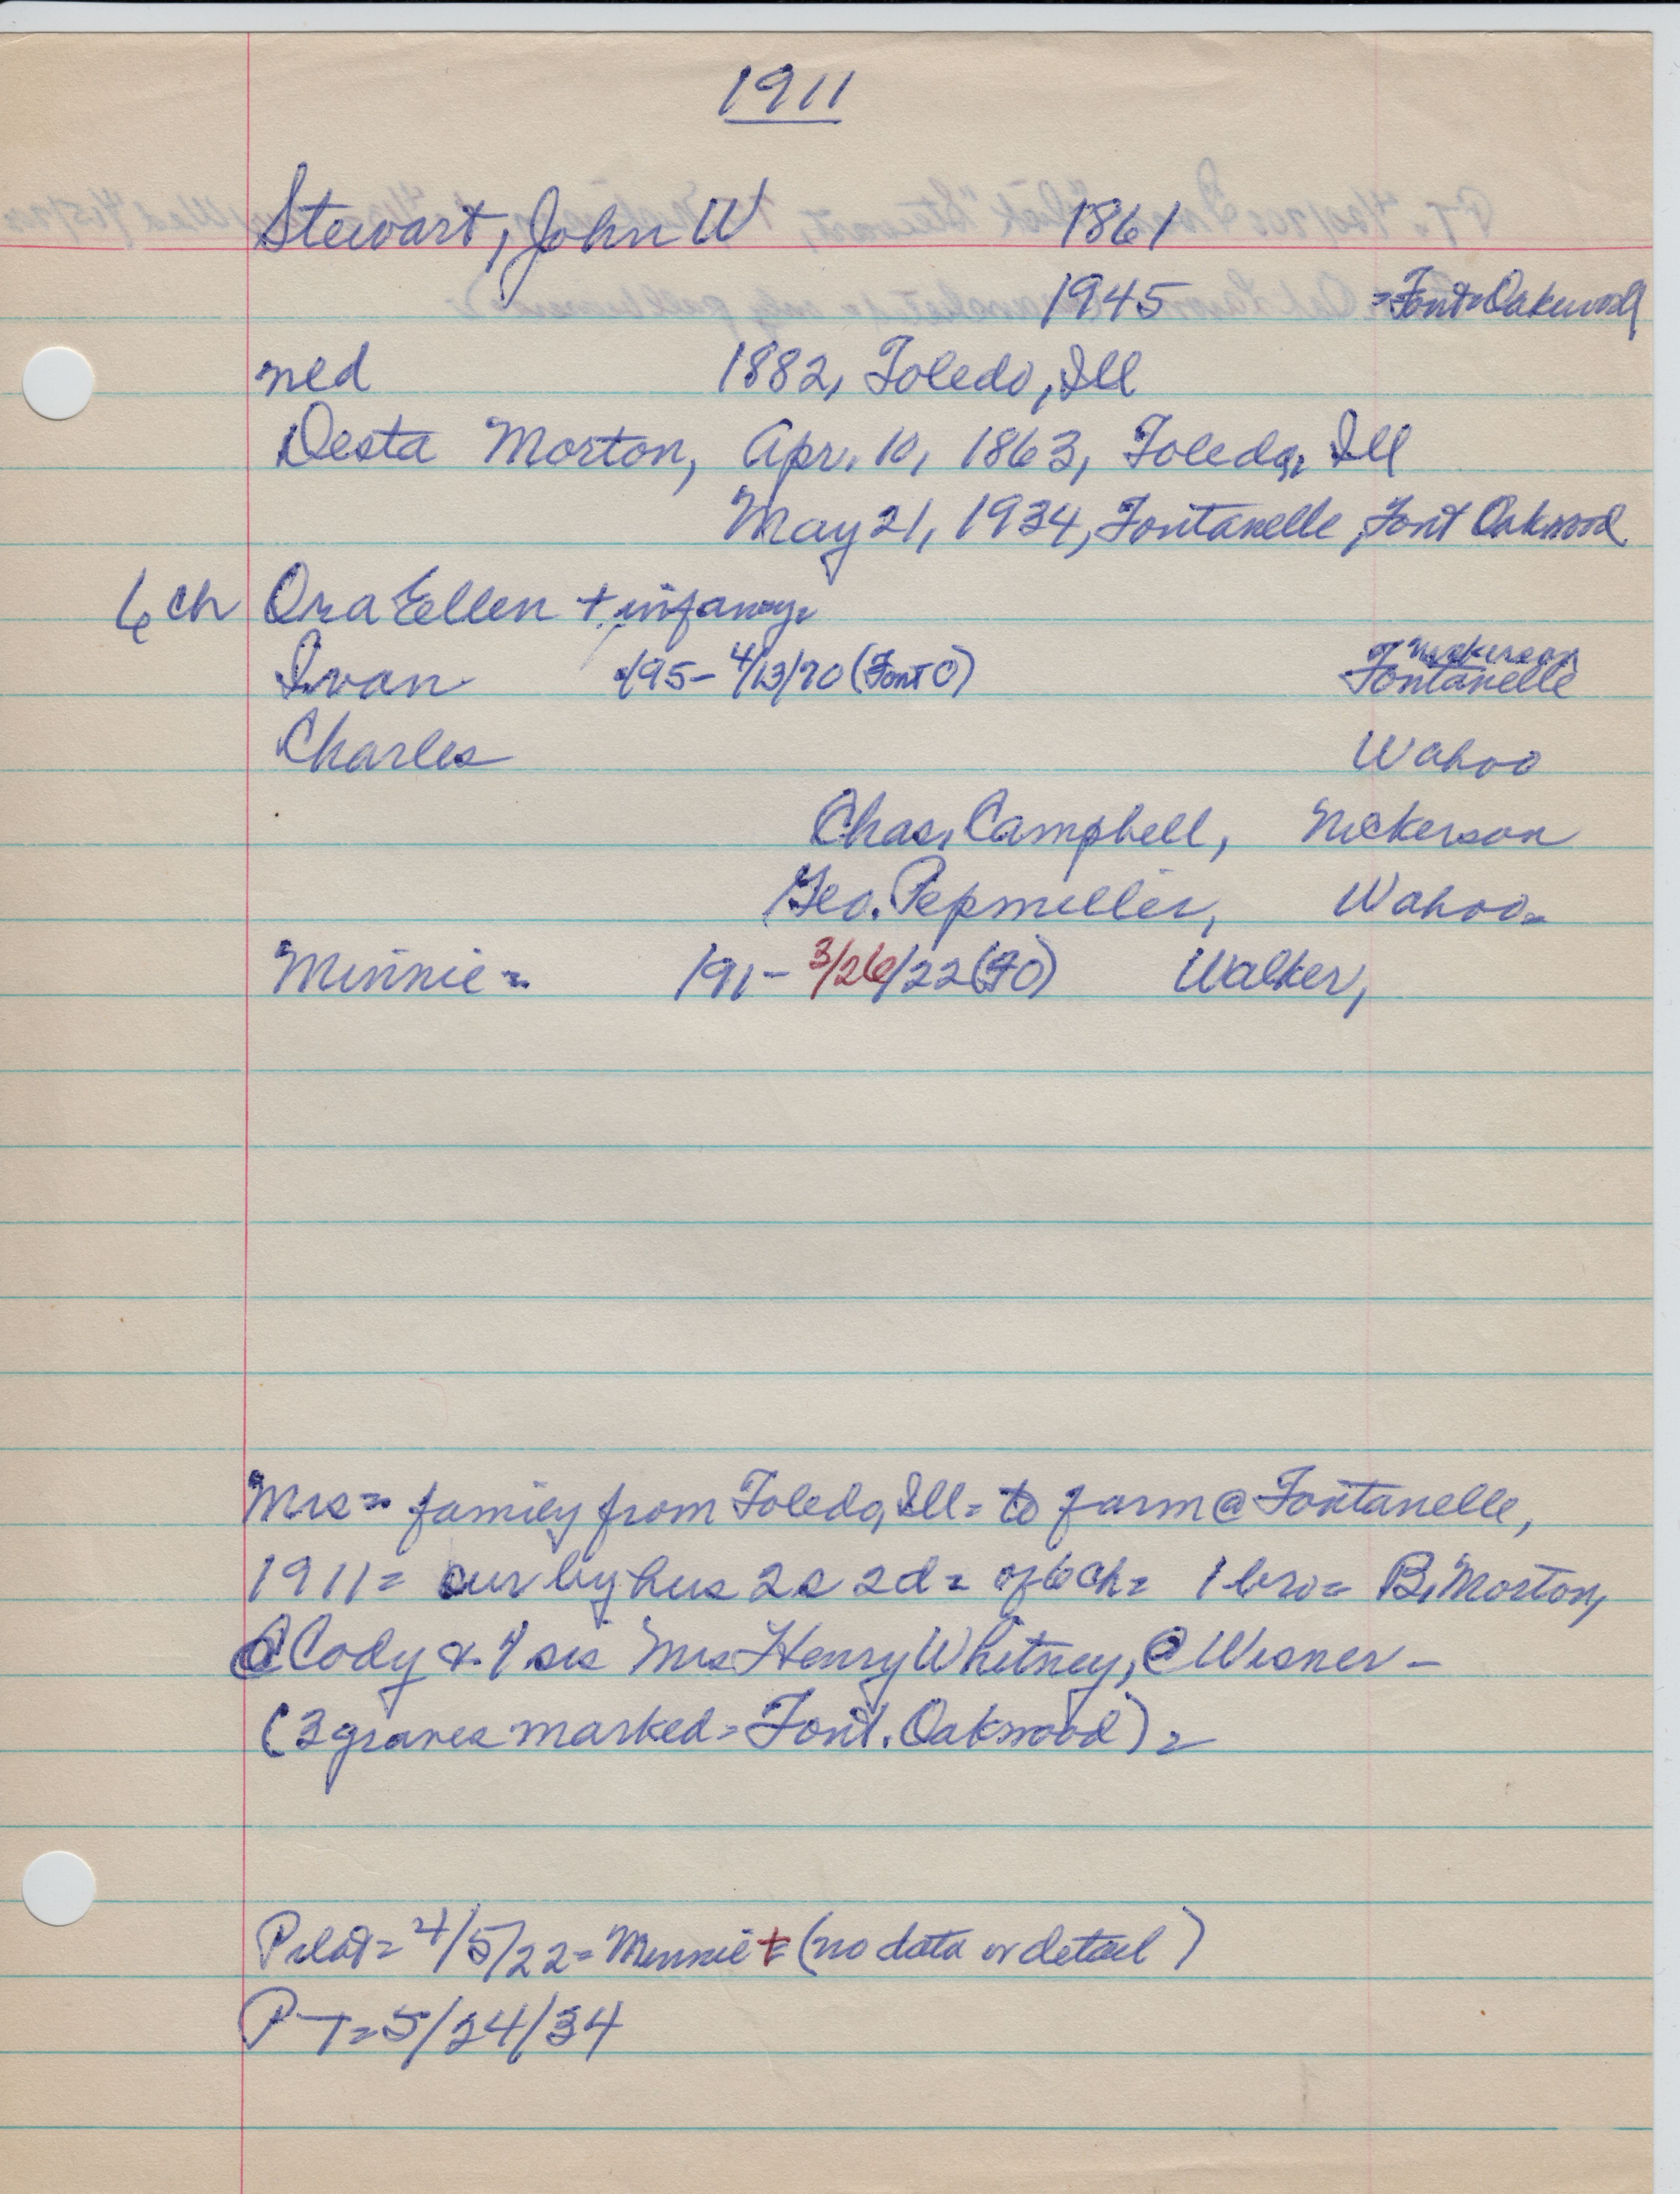 1911
Stewart, John W 1861
1945 = Font = Oakwood
med 1882, Toledo, Ill
Desta Morton, Apr. 10, 1863, Toledo, Ill
May 21, 1934, Fontanelle, Font Oakwood
6 ch Ora Ellen + infancy =
Ivan 195- 4/13/70 (Font O) of Nickerson
Fontanelle
Charles Wahoo
Chas. Campbell, Nickerson
Geo. Pepmiller, Wahoo =
Minnie = 191- 3/26/22 (FO) Walker,
Mrs = family from Toledo, Ill = to farm @ Fontanelle,
1911 = sur by hus 2s 2d = of 6 ch = 1 bro = B. Morton,
@ Cody & 1 sis Mrs Henry Whitney, @ Wisner -
(3 graves marked = Font. Oakwood) =
Pilot = 4/5/22 = Minnie + = (no data or detail)
PT = 5/24/34